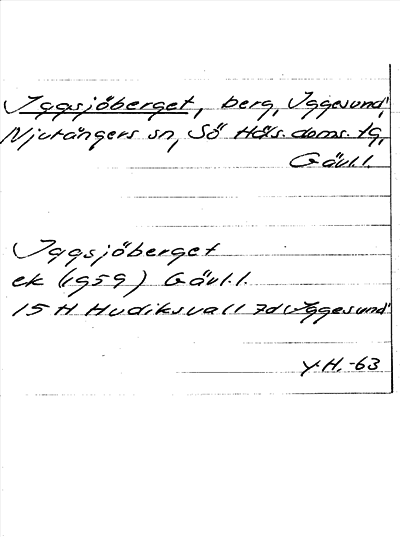 Iggsjöberget, berg, Iggesund,
Njutångers sn, Sö Häls. doms. tg,
Gävl.l.
Iggsjöberget
ek (1959) Gävl.l.
15 H Hudiksvall 7d Iggesund
Y.H. -63